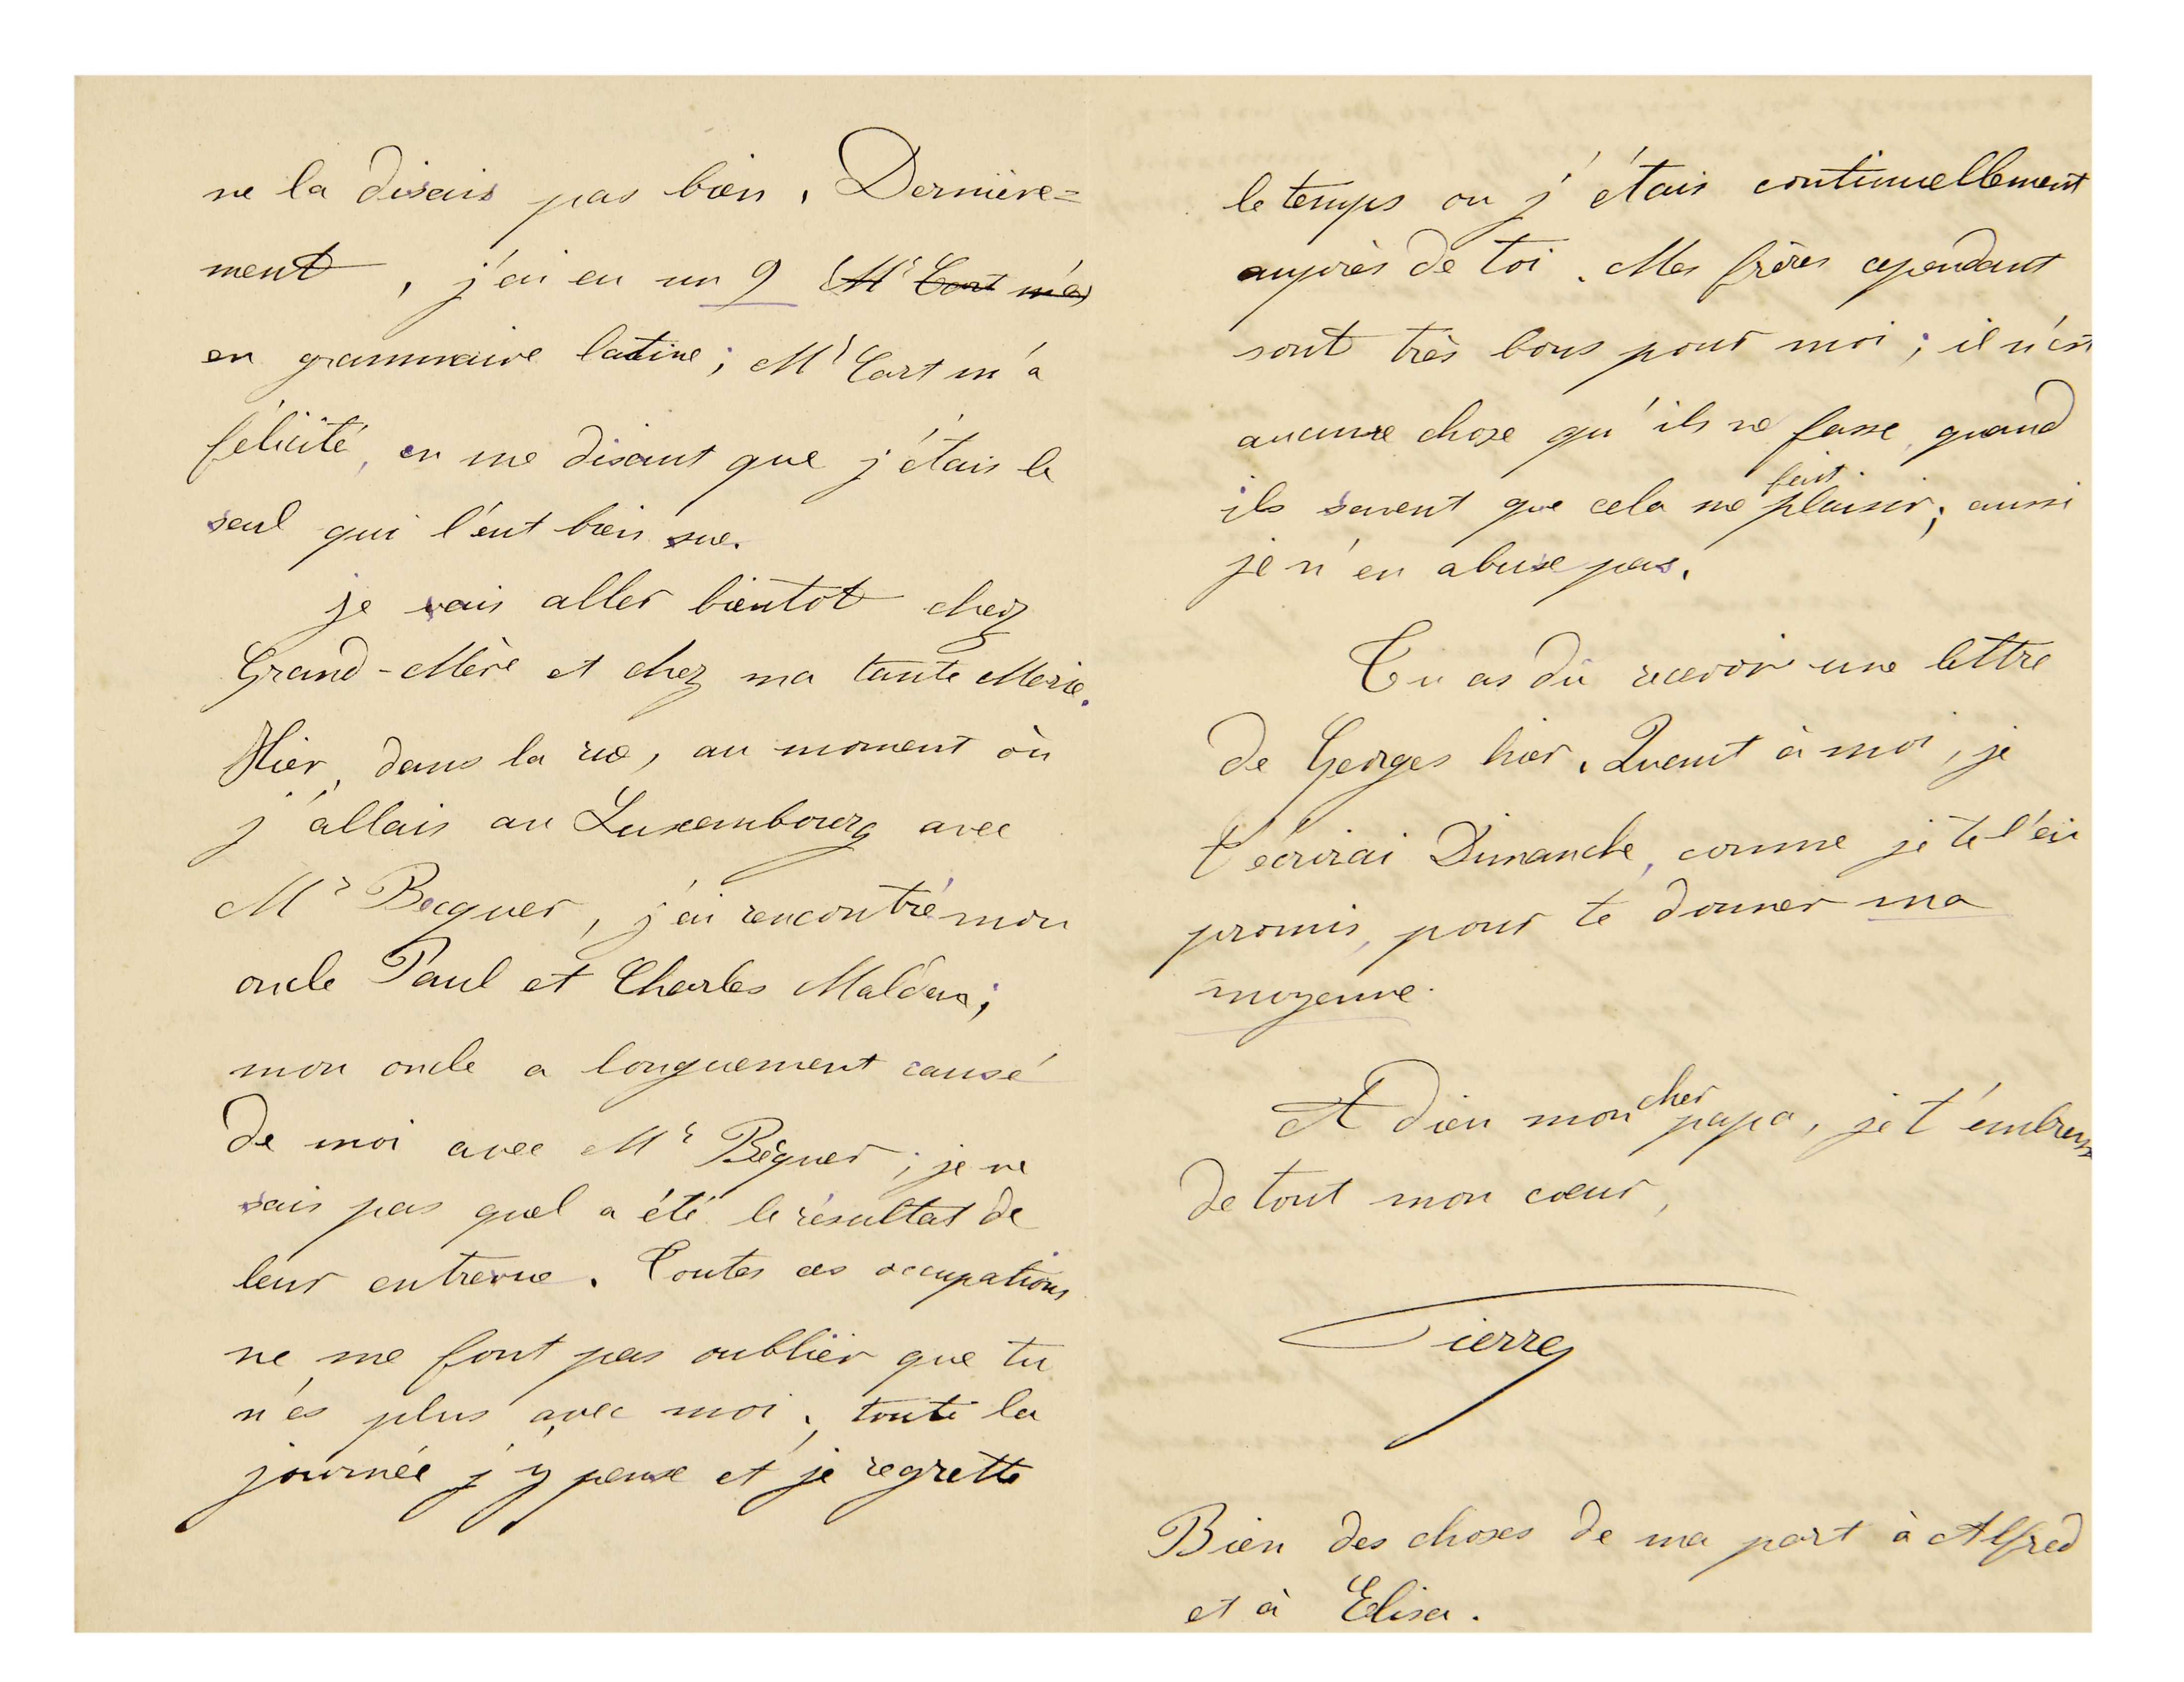 ne la disais pas bien. Dernière=
ment, j'ai eu un 9 (Mr Cart m'a)
en grammaire latine; Mr Cart m'a
félicité, en me disant que j'étais le
seul qui l'eut bien sue.
je vais aller bientôt chez
Grand-Mère et chez ma tante Marie.
Hier, dans la rue, au moment où
j'allais au Luxembourg avec
Mr Becquer, j'ai rencontré mon
oncle Paul et Charles
mon oncle a longuement causé
de moi avec Mr Béquer; je ne
sais pas quel a été le résultat de
leur entrevue. Toutes ces occupations
ne me font pas oublier que tu
n'es plus avec moi, toute la
journée j'y pense et je regrette
le temps ou j'étais continuellement
auprès de toi. Mes frères cependant
sont très bons pour moi; il n'est
aucune chose qu'ils ne fasse, quand
ils savent que cela me fait plaisir; aussi
je n'en abuse pas.
Tu as dû recevoir une lettre
de Georges hier. Quant à moi, je
t'écrirai Dimanche, comme je te l'ai
promis, pour te donner ma
moyenne.
Adieu mon cher papa, je t'embrasse
de tout mon cœur,
Pierre
Bien des choses de ma part à Alfred
et à Elisa.